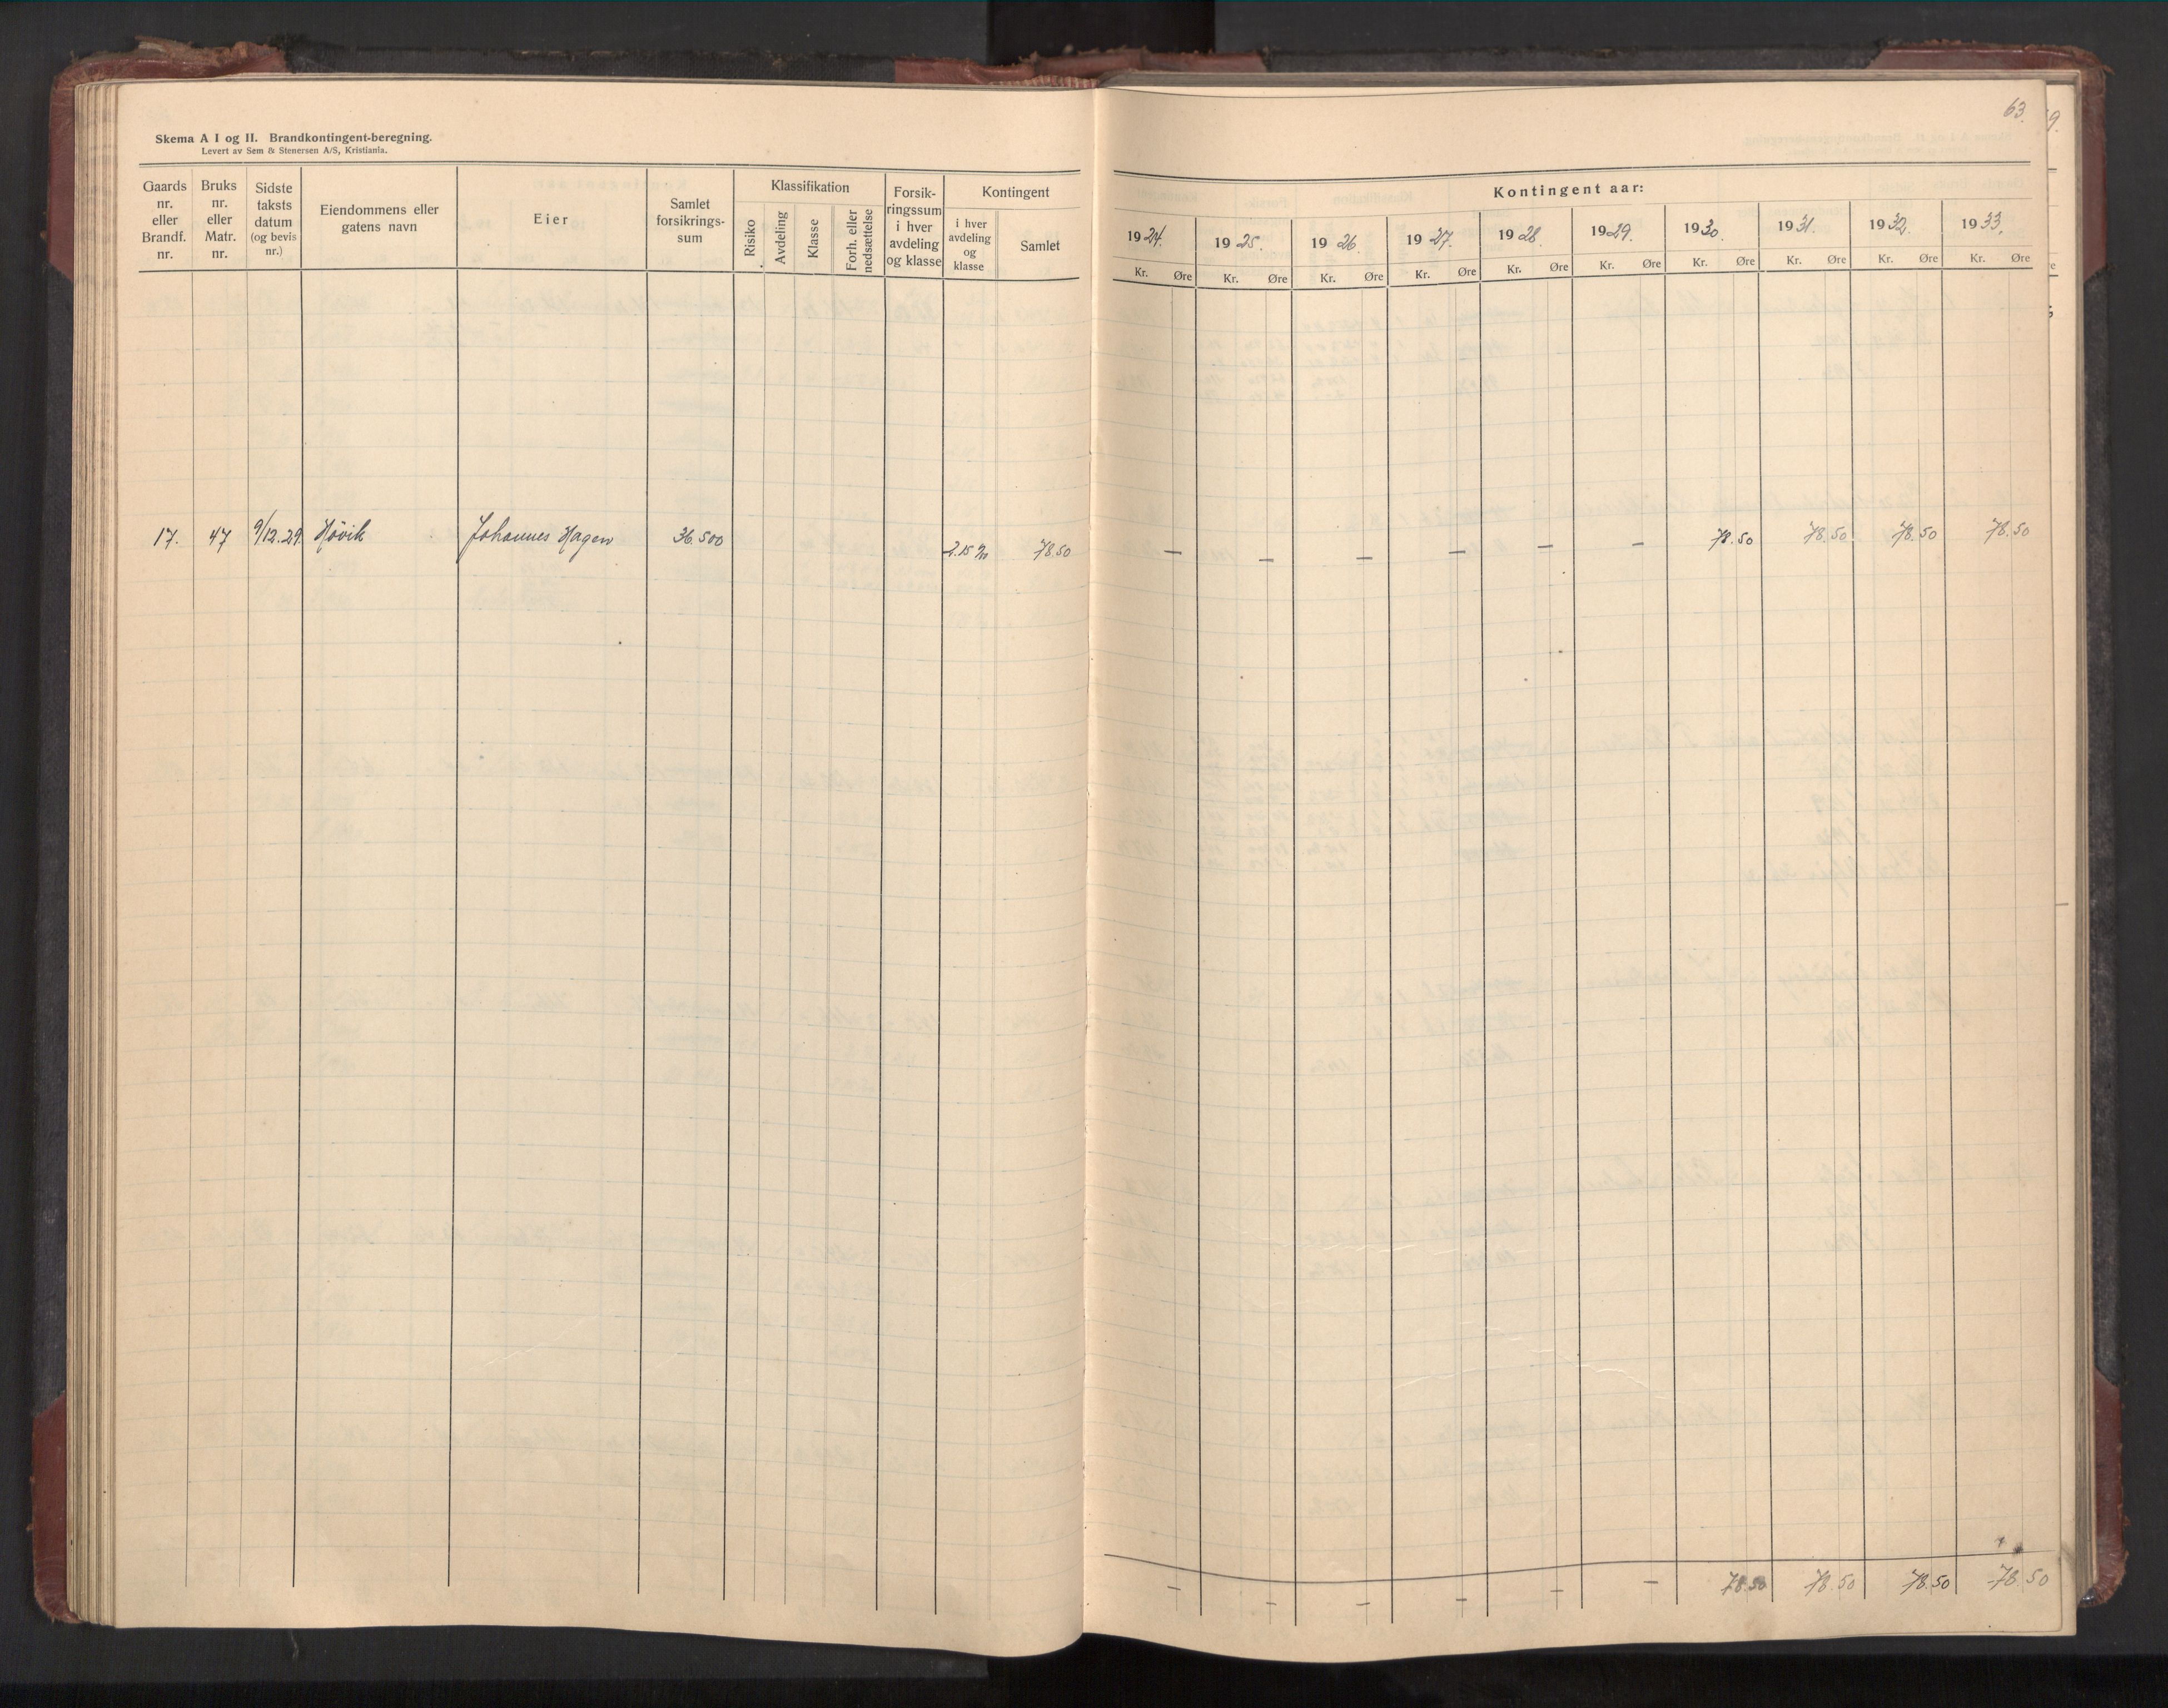 63.
Skema A I og II. Brandkontingent-beregning.
Levert av Sem & Stenersen A/S, Kristiania.
Gaards nr. eller Brandf. nr.
Bruks nr. eller Matr. nr.
Sidste taksts datum (og bevis nr.)
Eiendommens eller gatens navn
Eier
Samlet forsikrings-sum
Klassifikation
Risiko
Avdeling
Klasse
Forh. eller nedsættelse
Forsik-ringssum i hver avdeling og klasse
Kontingent
i hver avdeling og klasse
Samlet
Kontingent aar:
1924. 1925. 1926. 1927. 1928. 1929. 1930. 1931. 1932. 1933.
Kr. Øre Kr. Øre Kr. Øre Kr. Øre Kr. Øre Kr. Øre Kr. Øre Kr. Øre Kr. Øre Kr. Øre
17. 47 9/12.29. Hövik Johannes Hagen 36.500 2.15 78.50 — — — — — — 78.50 78.50 78.50 78.50
— — — — — — 78.50 78.50 78.50 78.50